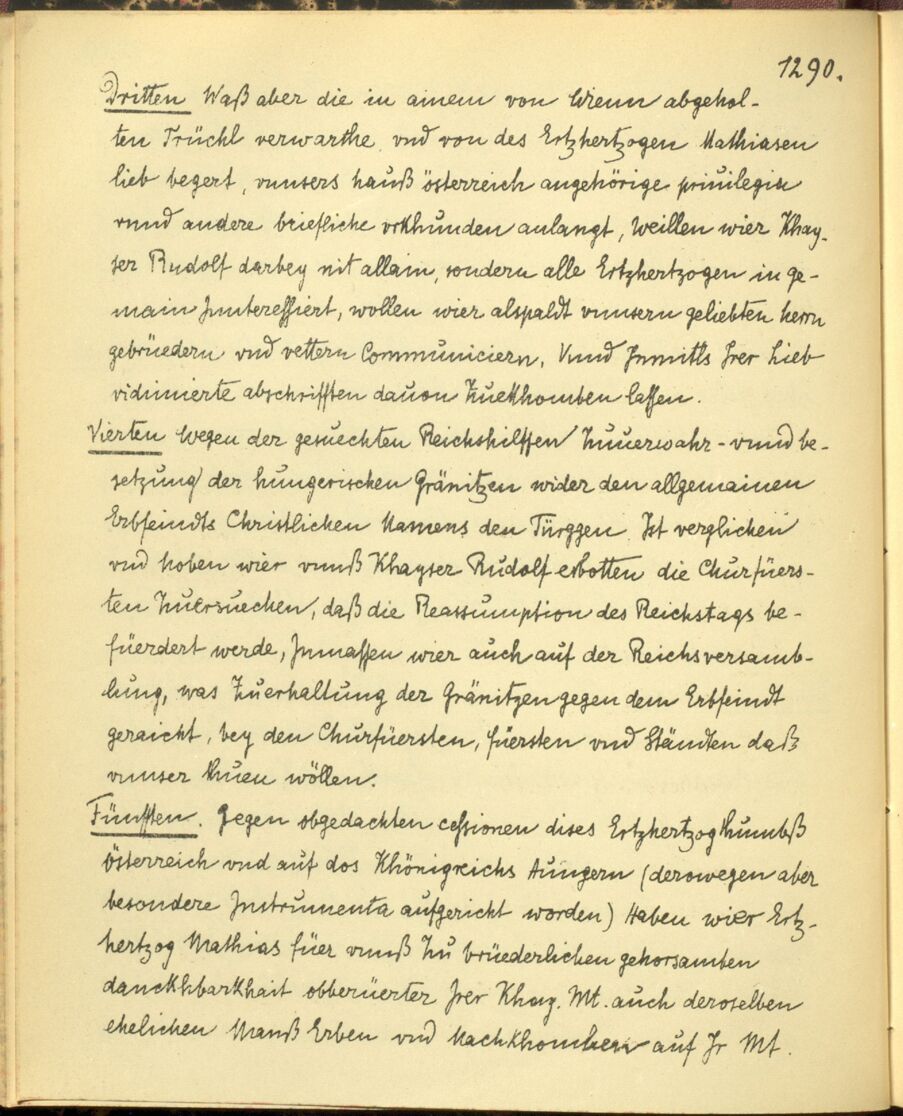 1290.
Dritten Waß aber die in ainem von Wienn abgehol-
ten Trüchl verwarthe vnd von des Ertzhertzogen Mathiasen
lieb begert, vnnsers hauß österreich angehörige priuilegia
vnnd andere briefliche vrkhunden anlangt, Weillen wier Khay-
ser Rudolf darbey nit allain, sondern alle Ertzhertzogen in ge-
main Innteressiert, wollen wier alspaldt vnnsern geliebten herrn
gebrüedern vnd vettern Communiciern, Vnnd Inmitls Irer Lieb
vidimierte abschrifften dauon Zuekhomben lassen.
Vierten Wegen der gesuechten Reichshilffen Zuuerwahr- vnnd be-
setzung der hungerischen Gränitzen wider den allgemainen
Erbfeindts Christlichen Namens den Türggen Ist verglichen
vnd haben wier vnnß Khayser Rudolf erbotten die Churfüers-
ten Zuersuechen, daß die Reassumption des Reichstags be-
füerdert werde, Inmassen wier auch auf der Reichsversamb-
lung, was Zuerhaltung der Gränitzen gegen dem Erbfeindt
geraicht, bey den Churfüersten, füersten vnd Ständten daß
vnnser thuen wöllen.
Fünfften. Gegen obgedachten cessionen dises Ertzhertzogthumbß
Österreich vnd auf das Khönigreichs Hungern (derowegen aber
besondere Instrumenta aufgericht worden) Haben wier Ertz-
hertzog Mathias füer vnnß Zu brüederlichen gehorsamben
danckhbarkhait obberüerter Irer Khay. Mt. auch deroselben
ehelichen Manß Erben vnd Nachkhomben auf Ir Mt.